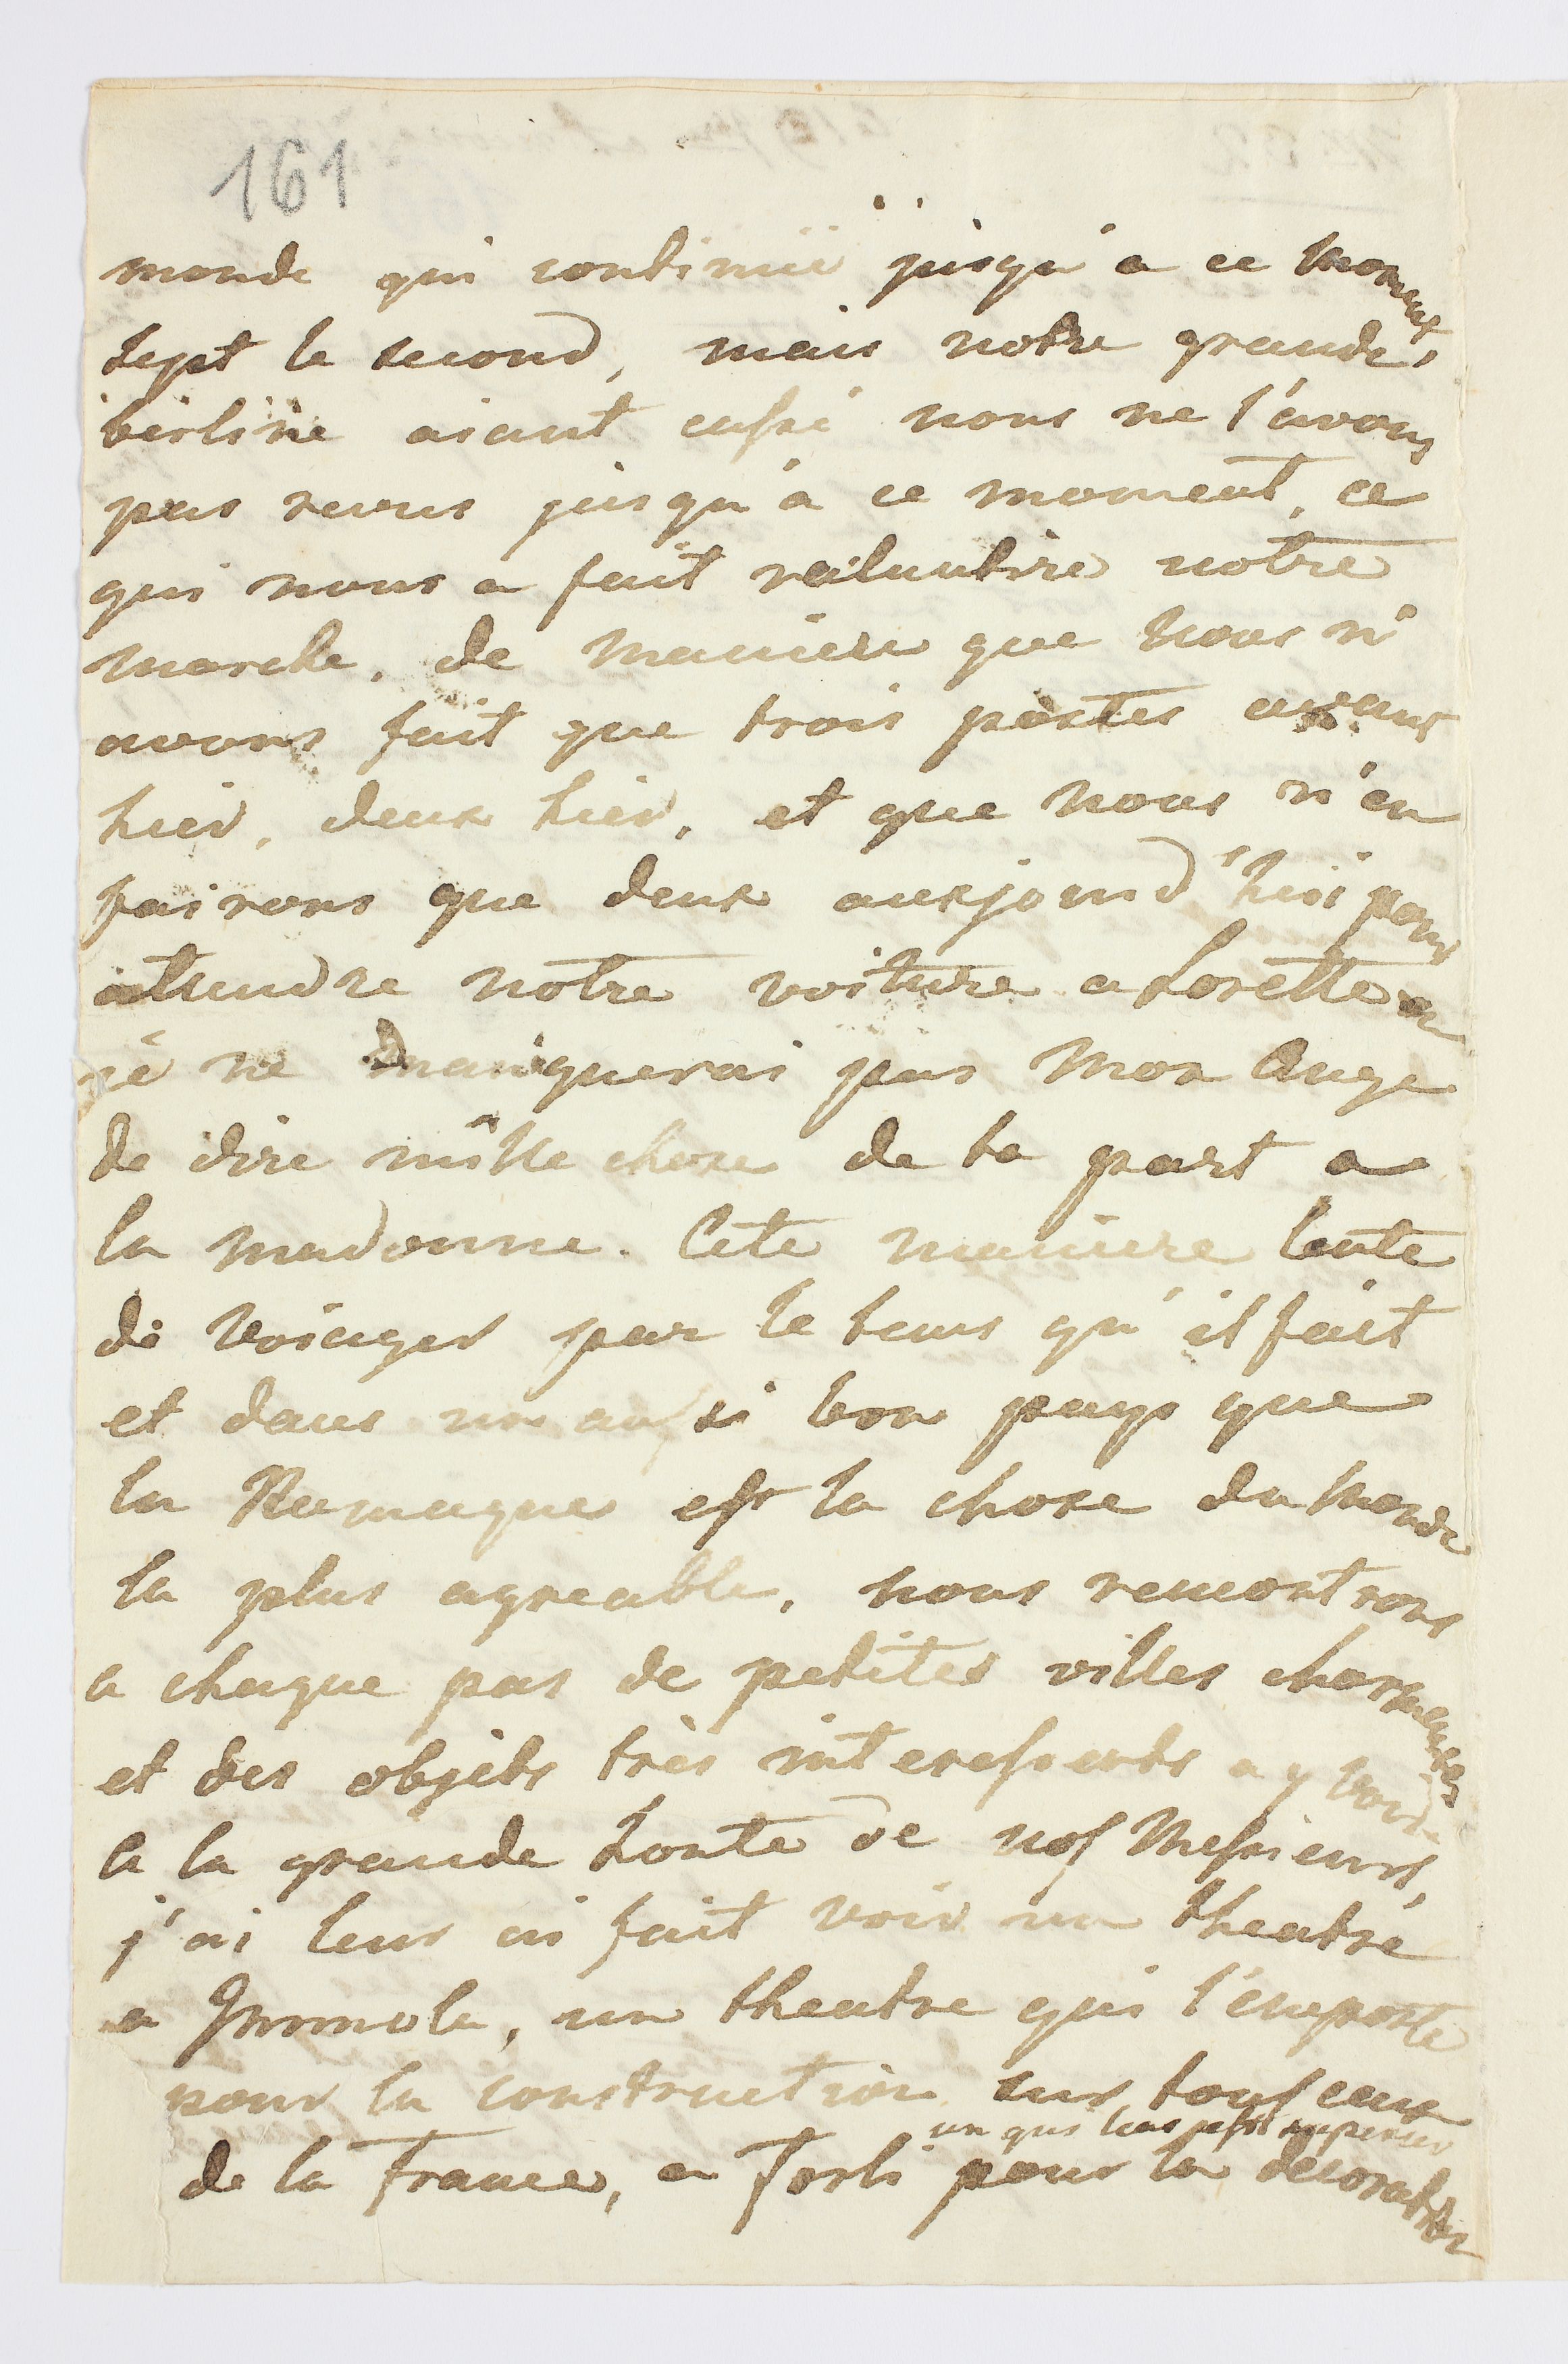 161
monde qui continüe jusqu'a ce moment
sept le second, mais notre grande
berline aiant cassé nous ne l'avons
pas revus jusqu'à ce moment, ce
qui nous a fait ralantire notre
marche, de maniere que nous n'
avons fait que trois postes avant
hier, deux hier, et que nous n'en
fairons que deux auxjourd'hui pour
attendre notre voiture a Lorette
je ne manquerai pas mon Ange
de dire mille chose de ta part a
la madonne. Cete maniere lente
de voiager par le tems qu'il fait
et dans un aussi bon pays que
la Romagne est la chose du monde
la plus agreable, nous rencontrons
a chaque pas de petites villes charmantes
et des objets très interessents a y voir.
a la grande honte de nos Messieurs,
j'ai leur ai fait voir un theatre
a Immola, un theatre qui l'emporte
pour la construction sur tous ceux
de la France, a Forli un qui leur est superieur pour la decoration